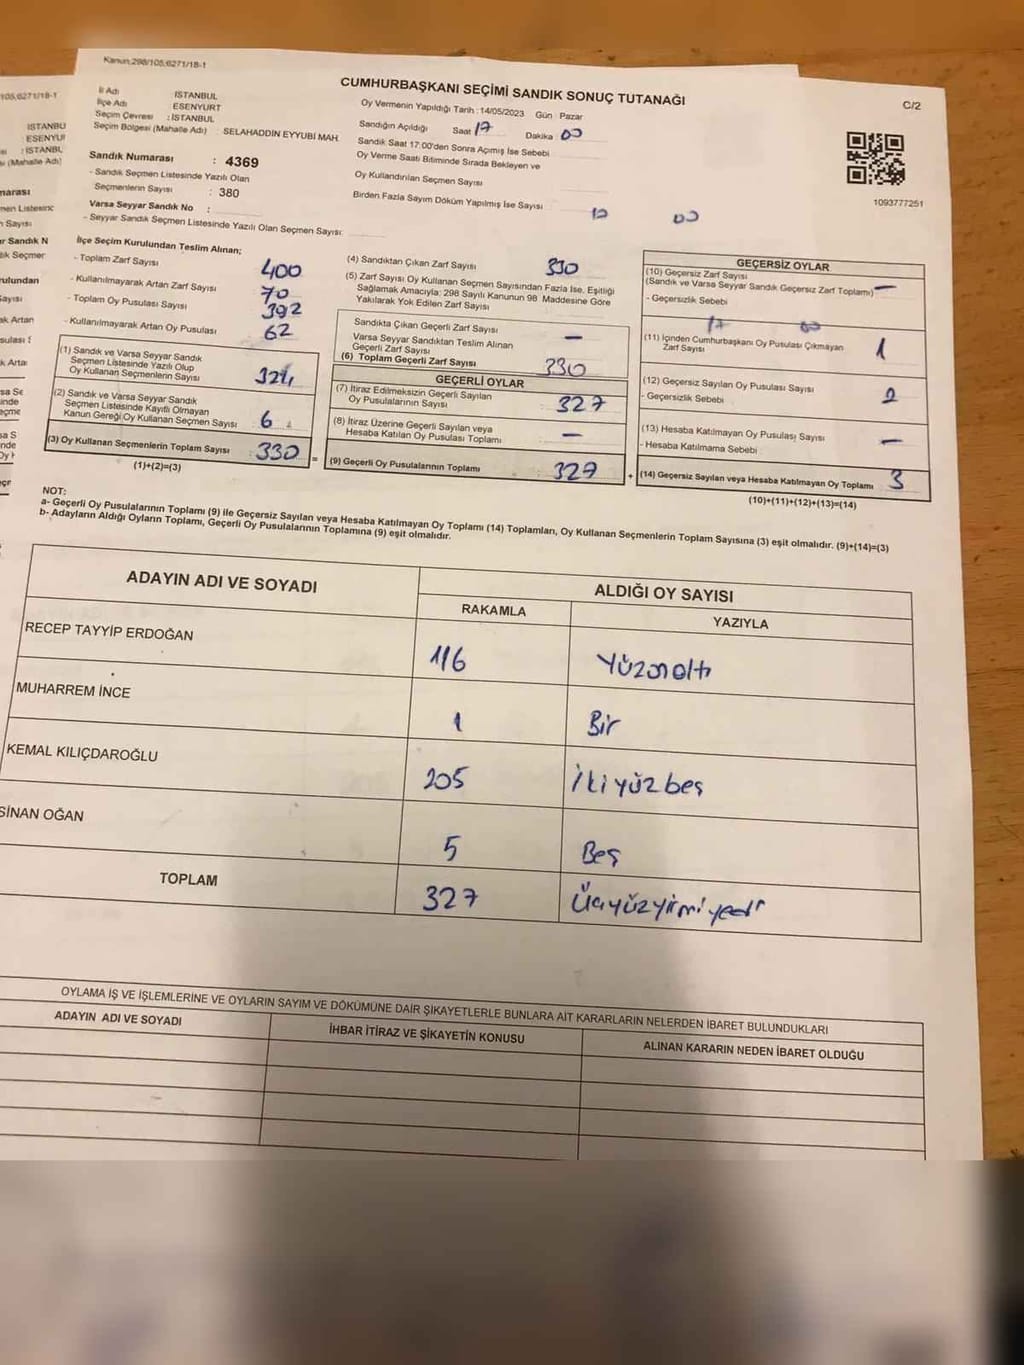 Kanun;298/105;6271/18-1
CUMHURBAŞKANI SEÇİMİ SANDIK SONUÇ TUTANAĞI
C/2
İl Adı : İSTANBUL
İlçe Adı : ESENYURT
Seçim Çevresi : İSTANBUL
Seçim Bölgesi (Mahalle Adı) : SELAHADDİN EYYUBİ MAH.
Sandık Numarası : 4369
- Sandık Seçmen Listesinde Yazılı Olan
Seçmenlerin Sayısı : 380
Varsa Seyyar Sandık No :
- Seyyar Sandık Seçmen Listesinde Yazılı Olan Seçmen Sayısı:
Oy Vermenin Yapıldığı Tarih : 14/05/2023 Gün : Pazar
Sandığın Açıldığı Saat 17 Dakika 00
Sandık Saat 17:00'den Sonra Açımış İse Sebebi
Oy Verme Saati Bitiminde Sırada Bekleyen ve
Oy Kullandırılan Seçmen Sayısı
Birden Fazla Sayım Döküm Yapılmış İse Sayısı
1093777251
İlçe Seçim Kurulundan Teslim Alınan;
- Toplam Zarf Sayısı 400
- Kullanılmayarak Artan Zarf Sayısı 70
- Toplam Oy Pusulası Sayısı 392
- Kullanılmayarak Artan Oy Pusulası 62
(1) Sandık ve Varsa Seyyar Sandık
Seçmen Listesinde Yazılı Olup
Oy Kullanan Seçmenlerin Sayısı 324
(2) Sandık ve Varsa Seyyar Sandık
Seçmen Listesinde Kayıtlı Olmayan
Kanun Gereği Oy Kullanan Seçmen Sayısı 6
(3) Oy Kullanan Seçmenlerin Toplam Sayısı 330
(1)+(2)=(3)
(4) Sandıktan Çıkan Zarf Sayısı 330
(5) Zarf Sayısı Oy Kullanan Seçmen Sayısından Fazla İse, Eşitliği
Sağlamak Amacıyla; 298 Sayılı Kanunun 98 Maddesine Göre
Yakılarak Yok Edilen Zarf Sayısı
Sandıkta Çıkan Geçerli Zarf Sayısı
Varsa Seyyar Sandıktan Teslim Alınan —
Geçerli Zarf Sayısı
(6) Toplam Geçerli Zarf Sayısı 330
GEÇERLİ OYLAR
(7) İtiraz Edilmeksizin Geçerli Sayılan
Oy Pusulalarının Sayısı 327
(8) İtiraz Üzerine Geçerli Sayılan veya
Hesaba Katılan Oy Pusulası Toplamı —
(9) Geçerli Oy Pusulalarının Toplamı 327
GEÇERSİZ OYLAR
(10) Geçersiz Zarf Sayısı
(Sandık ve Varsa Seyyar Sandık Geçersiz Zarf Toplamı) —
- Geçersizlik Sebebi
(11) İçinden Cumhurbaşkanı Oy Pusulası Çıkmayan
Zarf Sayısı 1
(12) Geçersiz Sayılan Oy Pusulası Sayısı 2
- Geçersizlik Sebebi
(13) Hesaba Katılmayan Oy Pusulası Sayısı —
- Hesaba Katılmama Sebebi
(14) Geçersiz Sayılan veya Hesaba Katılmayan Oy Toplamı 3
(10)+(11)+(12)+(13)=(14)
NOT:
a- Geçerli Oy Pusulalarının Toplamı (9) ile Geçersiz Sayılan veya Hesaba Katılmayan Oy Toplamı (14) Toplamları, Oy Kullanan Seçmenlerin Toplam Sayısına (3) eşit olmalıdır. (9)+(14)=(3)
b- Adayların Aldığı Oyların Toplamı, Geçerli Oy Pusulalarının Toplamına (9) eşit olmalıdır.
ADAYIN ADI VE SOYADI
ALDIĞI OY SAYISI
RAKAMLA YAZIYLA
RECEP TAYYİP ERDOĞAN 116 Yüzonaltı
MUHARREM İNCE 1 Bir
KEMAL KILIÇDAROĞLU 205 İkiyüzbeş
SİNAN OĞAN 5 Beş
TOPLAM 327 Üçyüzyirmiyedi
OYLAMA İŞ VE İŞLEMLERİNE VE OYLARIN SAYIM VE DÖKÜMÜNE DAİR ŞİKAYETLERLE BUNLARA AİT KARARLARIN NELERDEN İBARET BULUNDUKLARI
ADAYIN ADI VE SOYADI
İHBAR İTİRAZ VE ŞİKAYETİN KONUSU
ALINAN KARARIN NEDEN İBARET OLDUĞU